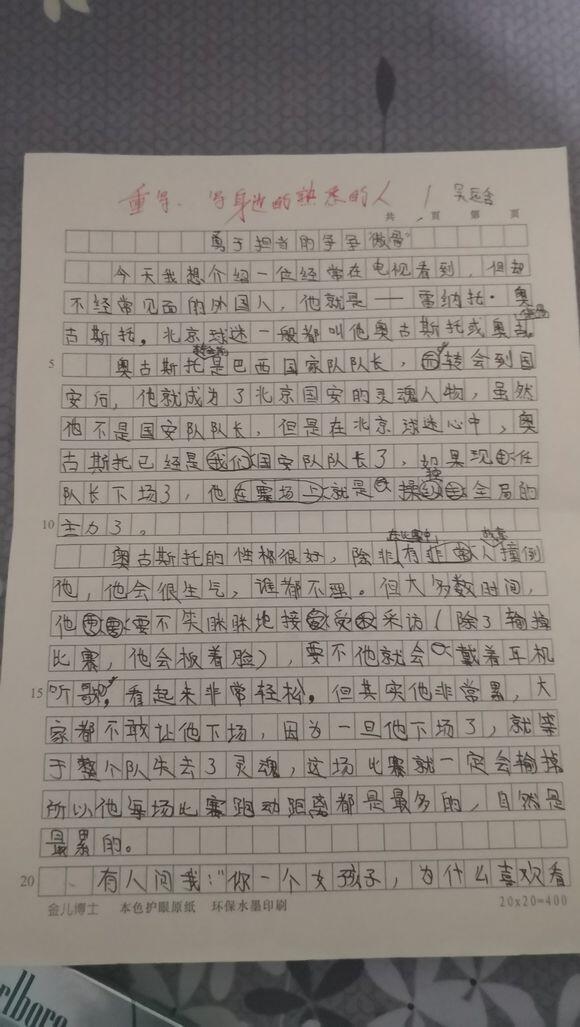 重写、写身边的熟悉的人
共 页 第 页
勇于担当的
今天我想介绍一位经常在电视看到，但却
不经常见面的外国人，他就是——雷纳托·奥
古斯托。北京球迷一般都叫他奥古斯托或奥古
5 奥古斯托是巴西国家队队长，转会到国
安后，他就成为了北京国安的灵魂人物，虽然
他不是国安队队长，但是在北京球迷心中，奥
古斯托已经是我们国安队队长了，如果现任
队长下场了，他在赛场上就是操全局的
10 主力了。
奥古斯托的性格很好，除非有人撞倒
他，他会很生气，谁都不理。但大多数时间，
他要不笑眯眯地接受采访（除了输掉
比赛，他会板着脸），要不他就会戴着耳机
15 听歌，看起来非常轻松。但其实他非常累，大
家都不敢让他下场，因为一旦他下场了，就等
于整个队失去了灵魂，这场比赛就一定会输掉
所以他每场比赛跑动距离都是最多的，自然是
最累的。
20 有人问我：“你一个女孩子，为什么喜欢看
金儿博士 本色护眼原纸 环保水墨印刷 20x20=400
rlboro